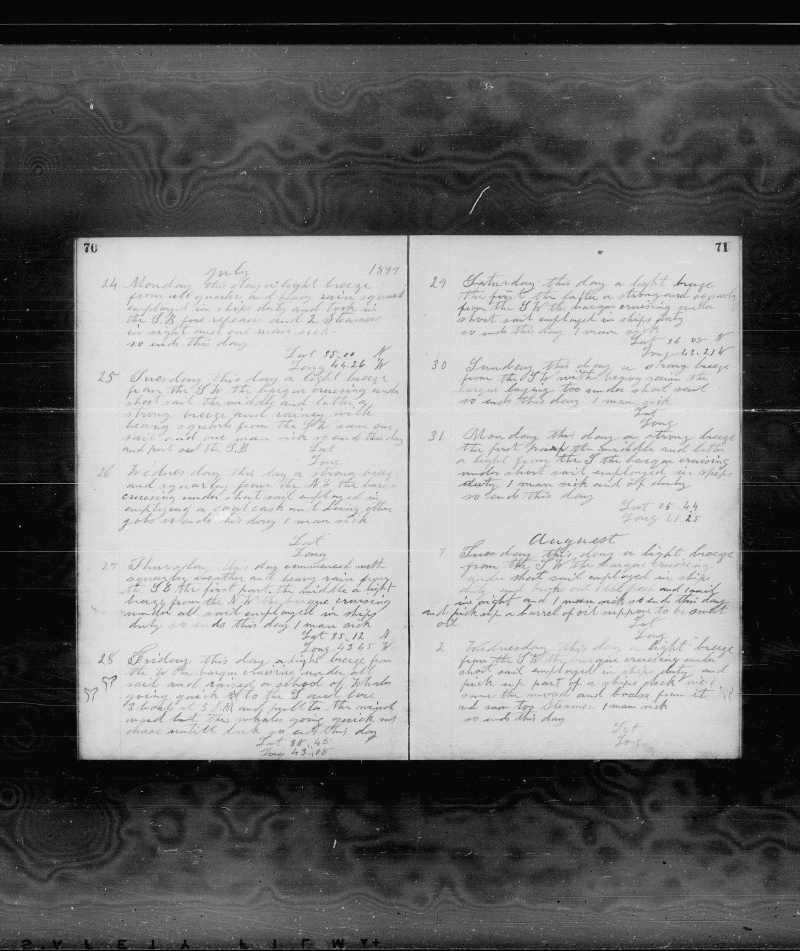 70
July 1899
24 Monday this day a light breeze
from all quarters and heavy rain squalls
employed in ships duty and took in
the S.B. fire repeares and 2 Steamers
in sight and one man sick
so ends this day
Lat 35.00 N
Long 44.26 W
25 Tuesday this day a light breeze
from the S W the barque cruesing under
short sail the middle and latter a
strong breeze and rainey with
heavy squarls from the S W saw one
sail and one man sick so ends this day
and part out the S.B
Lat
Long
26 Wednesday this day a strong breeze
and squarley from the the barque
cruesing under short sail employed in
employing a cask and doing other
jobs so ends this day 1 man sick
Lat
Long
27 Thursday this day commenced with
squarley weather and heavy rain from
the S E the first part the middle a light
breeze from the the barque cruesing
under all sail employed in ships
duty so ends this day 1 man sick
Lat 35.12 N
Long 43 45 W
28 Friday this day a light breeze from
the W the barque cruesing under all
sail and raised a school of Whales
going quick to the S and lore
3 boats at 5 P.M and pull to the wind
ward but the whales going quick off
chase untill dark so ends this day
Lat 35.45
Long 43.05
71
29 Saturday this day a light breeze
the first the latter a strong and squarly
from the S W the barque cruesing under
short sail employed in ships duty
so ends this day 1 man sick
Lat 36.05 N
Long 43.21 W
30 Sunday this day a strong breeze
from the S W with heavy rain the
barque laying too under short sail
so ends this day 1 man sick
Lat
Long
31 Monday this day a strong breeze
the first part the middle and latter
a light from the the barque cruesing
under short sail employed in ships
duty 1 man sick and off duty
so ends this day
Lat 36.44
Long 25
Auguest
1 Tuesday this day a light breeze
from the S W the barque cruesing
under short sail employed in ships
duty one and 1 sail
in sight and 1 man sick so ends this day
and pick up a barrel of oil suppose to be sweet
oil
Lat
Long
2 Wednesday this day a light breeze
from the S W the barque cruesing under
short sail employed in ships duty and
pick up part of a ships deck
save the wood and from it
and saw top Steamer 1 man sick
so ends this day
Lat
Long
SAFETY FILM